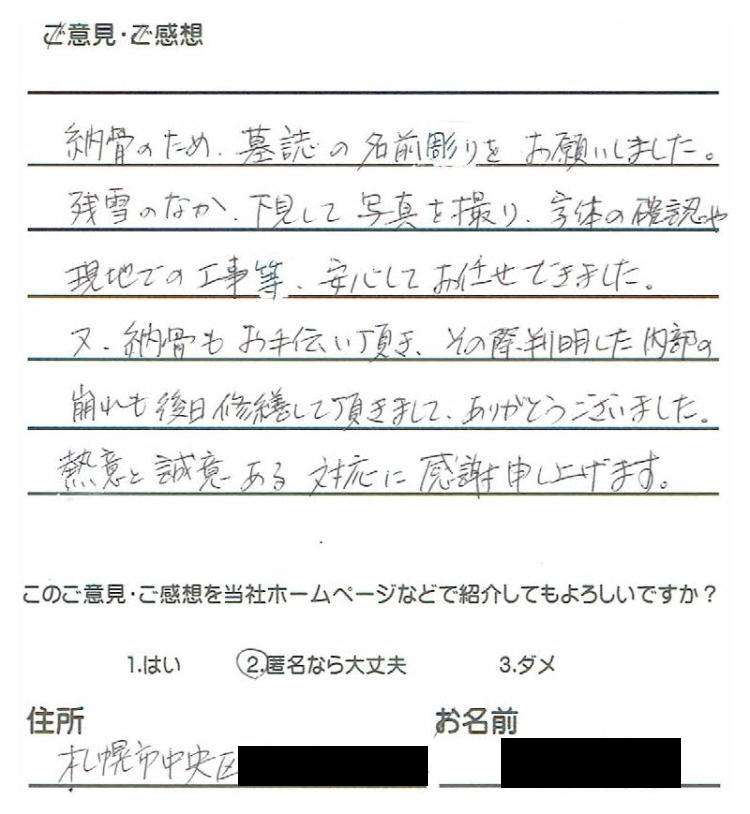 ご意見・ご感想
納骨のため、墓誌の名前彫りをお願いしました。
残雪のなか、下見して写真を撮り、字体の確認や
現地での工事等、安心してお任せできました。
又、納骨もお手伝い頂き、その際判明した内部の
崩れも後日修繕して頂きまして、ありがとうございました。
熱意と誠意ある対応に感謝申し上げます。
このご意見・ご感想を当社ホームページなどで紹介してもよろしいですか？
1.はい 2.匿名なら大丈夫 3.ダメ
住所 お名前
札幌市中央区